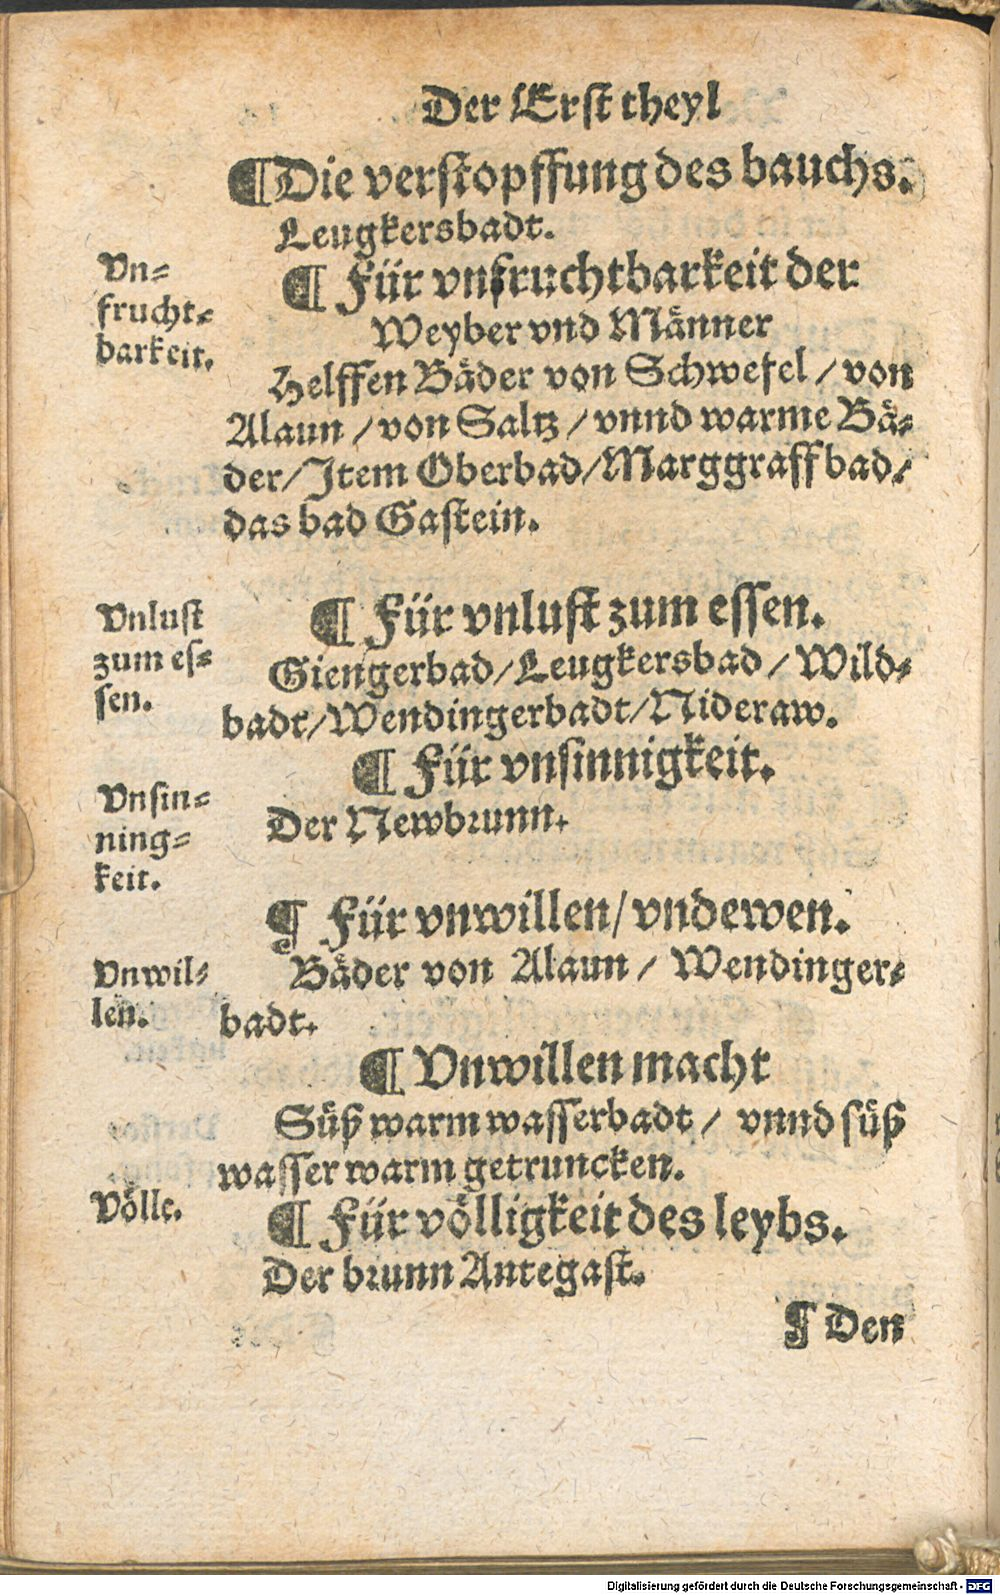 Der Erst theyl
¶ Die verstopffung des bauchs.
Leugkersbadt.
Vn=
frucht=
barkeit.
¶ Für vnfruchtbarkeit der
Weyber vnd Männer
Helffen Bäder von Schwefel / von
Alaun / von Saltz / vnnd warme Bä=
der / Item Oberbad / Marggraffbad /
das bad Gastein.
Vnlust
zum es=
sen.
¶ Für vnlust zum essen.
Giengerbad / Leugkersbad / Wild=
badt / Wendingerbadt / Nideraw.
Vnsin=
ning=
keit.
¶ Für vnsinnigkeit.
Der Newbrunn.
¶ Für vnwillen / vndewen.
Vnwil=
len.
Bäder von Alaun / Wendinger=
badt.
¶ Vnwillen macht
Süß warm wasserbadt / vnnd süß
wasser warm getruncken.
Völle.
¶ Für völligkeit des leybs.
Der brunn Antegast.
¶ Den
Digitalisierung gefördert durch die Deutsche Forschungsgemeinschaft - DFG